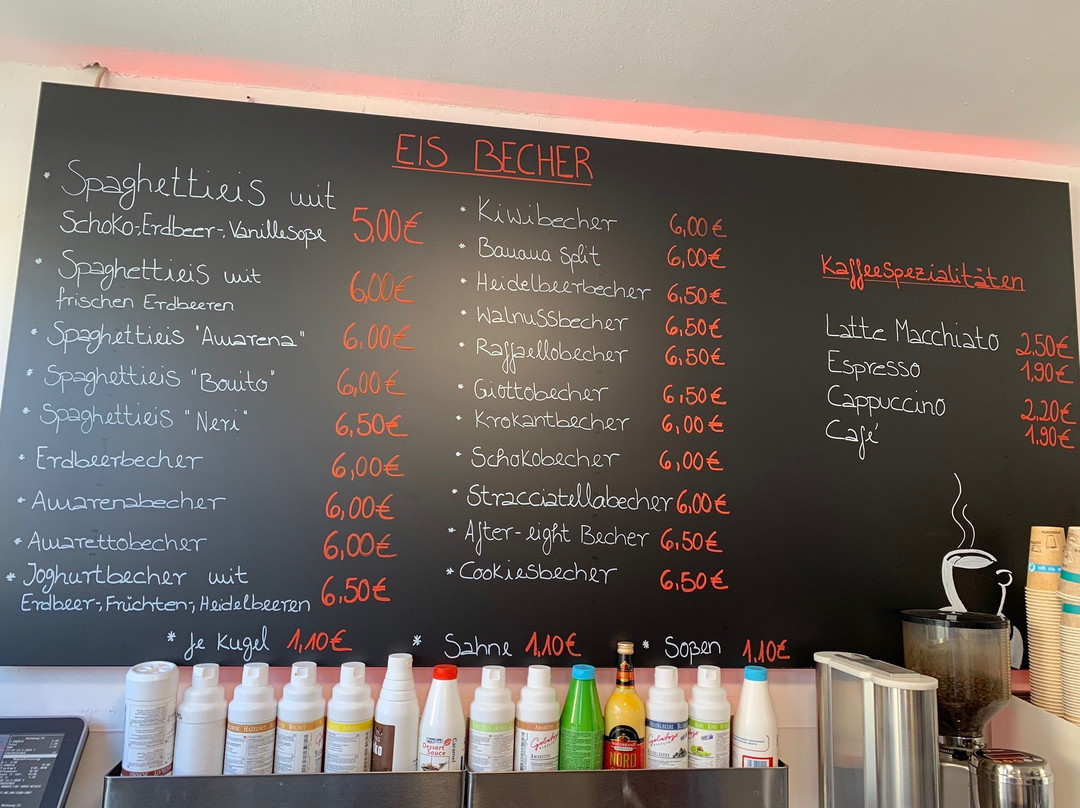 EIS BECHER
* Spaghettieis mit
Schoko-, Erdbeer-, Vanillesoße 5,00€
* Spaghettieis mit
frischen Erdbeeren 6,00€
* Spaghettieis "Amarena" 6,00€
* Spaghettieis "Bouito" 6,00€
* Spaghettieis "Neri" 6,50€
* Erdbeerbecher 6,00€
* Amarenabecher 6,00€
* Amarettobecher 6,00€
* Joghurtbecher mit
Erdbeer-, Früchten-, Heidelbeeren 6,50€
* Kiwibecher 6,00€
* Banana Split 6,00€
* Heidelbeerbecher 6,50€
* Walnussbecher 6,50€
* Raffaellobecher 6,50€
* Giottobecher 6,50€
* Krokantbecher 6,00€
* Schokobecher 6,00€
* Stracciatellabecher 6,00€
* After-eight Becher 6,50€
* Cookiesbecher 6,50€
Kaffeespezialitäten
Latte Macchiato 2,50€
Espresso 1,90€
Cappuccino 2,20€
Café 1,90€
* Je Kugel 1,10€ * Sahne 1,10€ * Soßen 1,10€
Dessert
Sauce
NORD